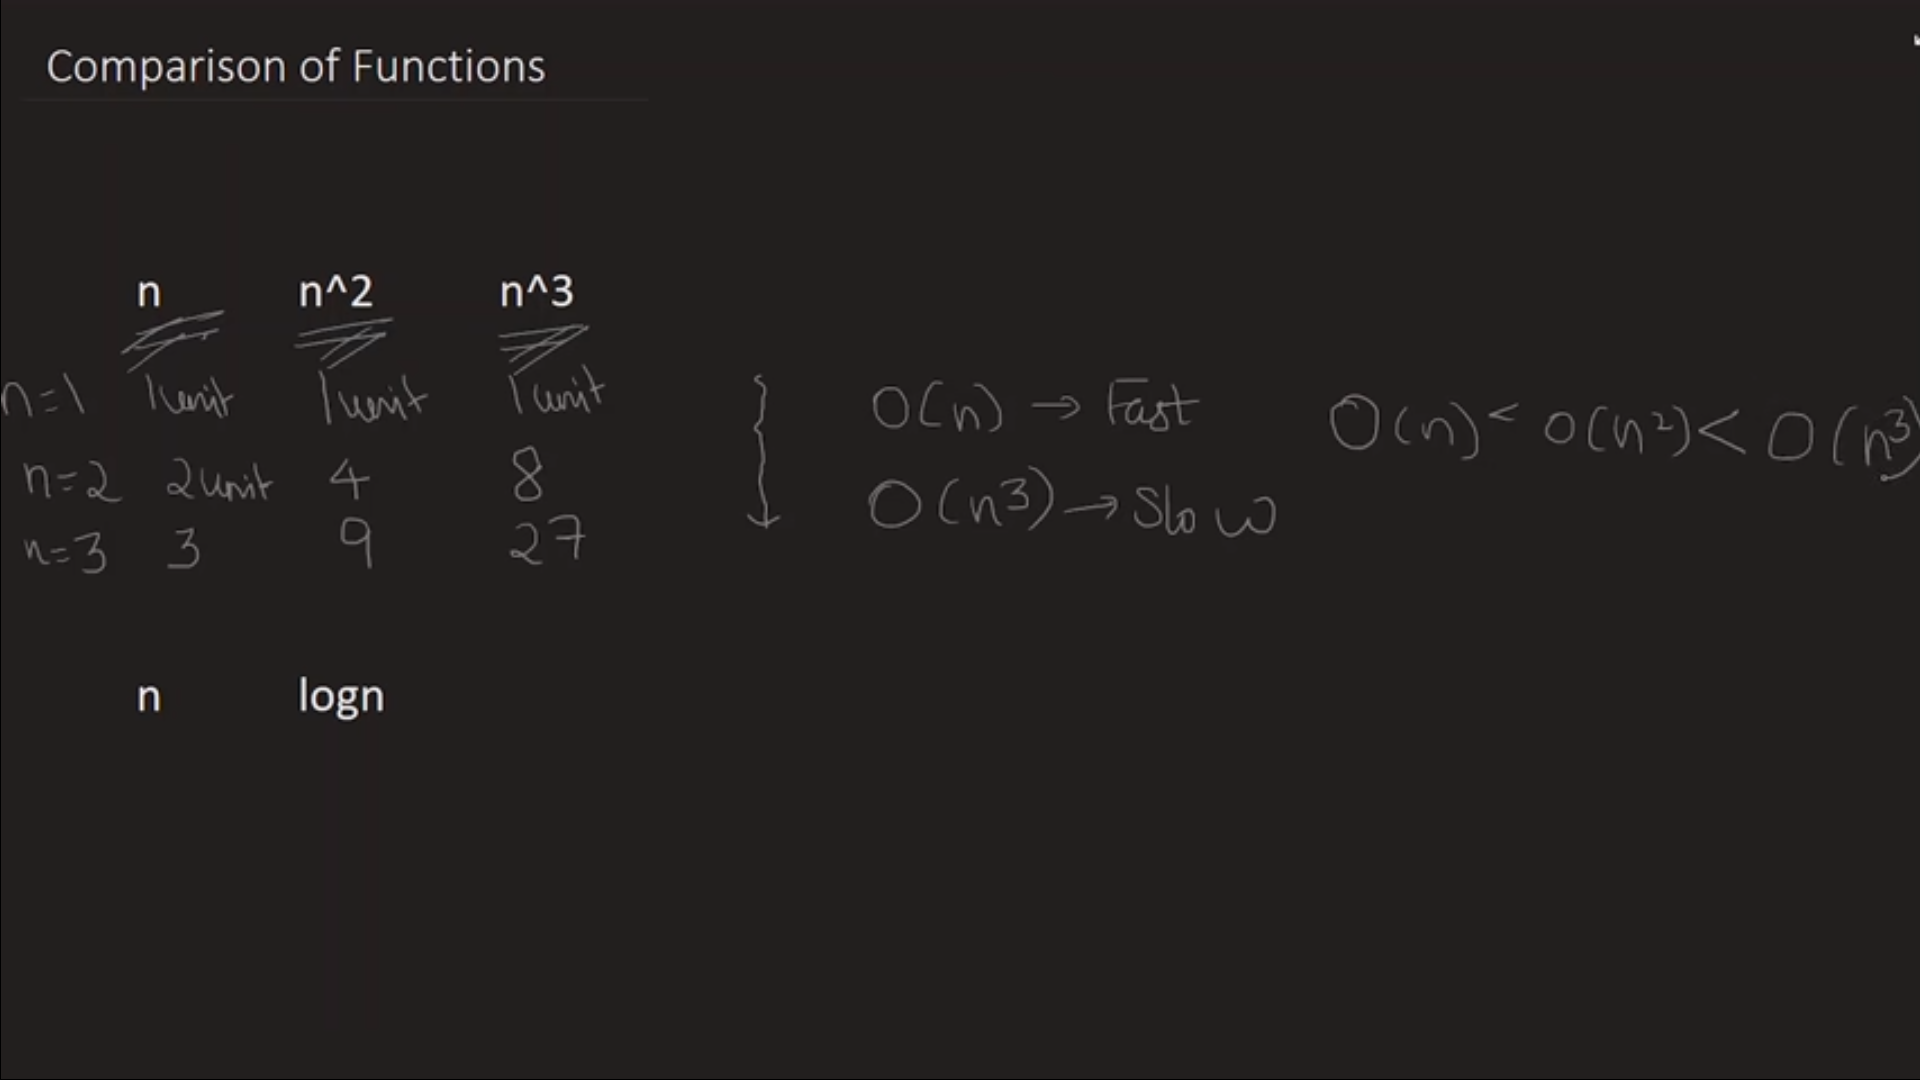 Comparison of Functions
n n^2 n^3
n=1 1unit 1unit 1unit
n=2 2unit 4 8
n=3 3 9 27
O(n) → Fast
O(n³) → Slow
O(n) < O(n²) < O(n³)
n logn